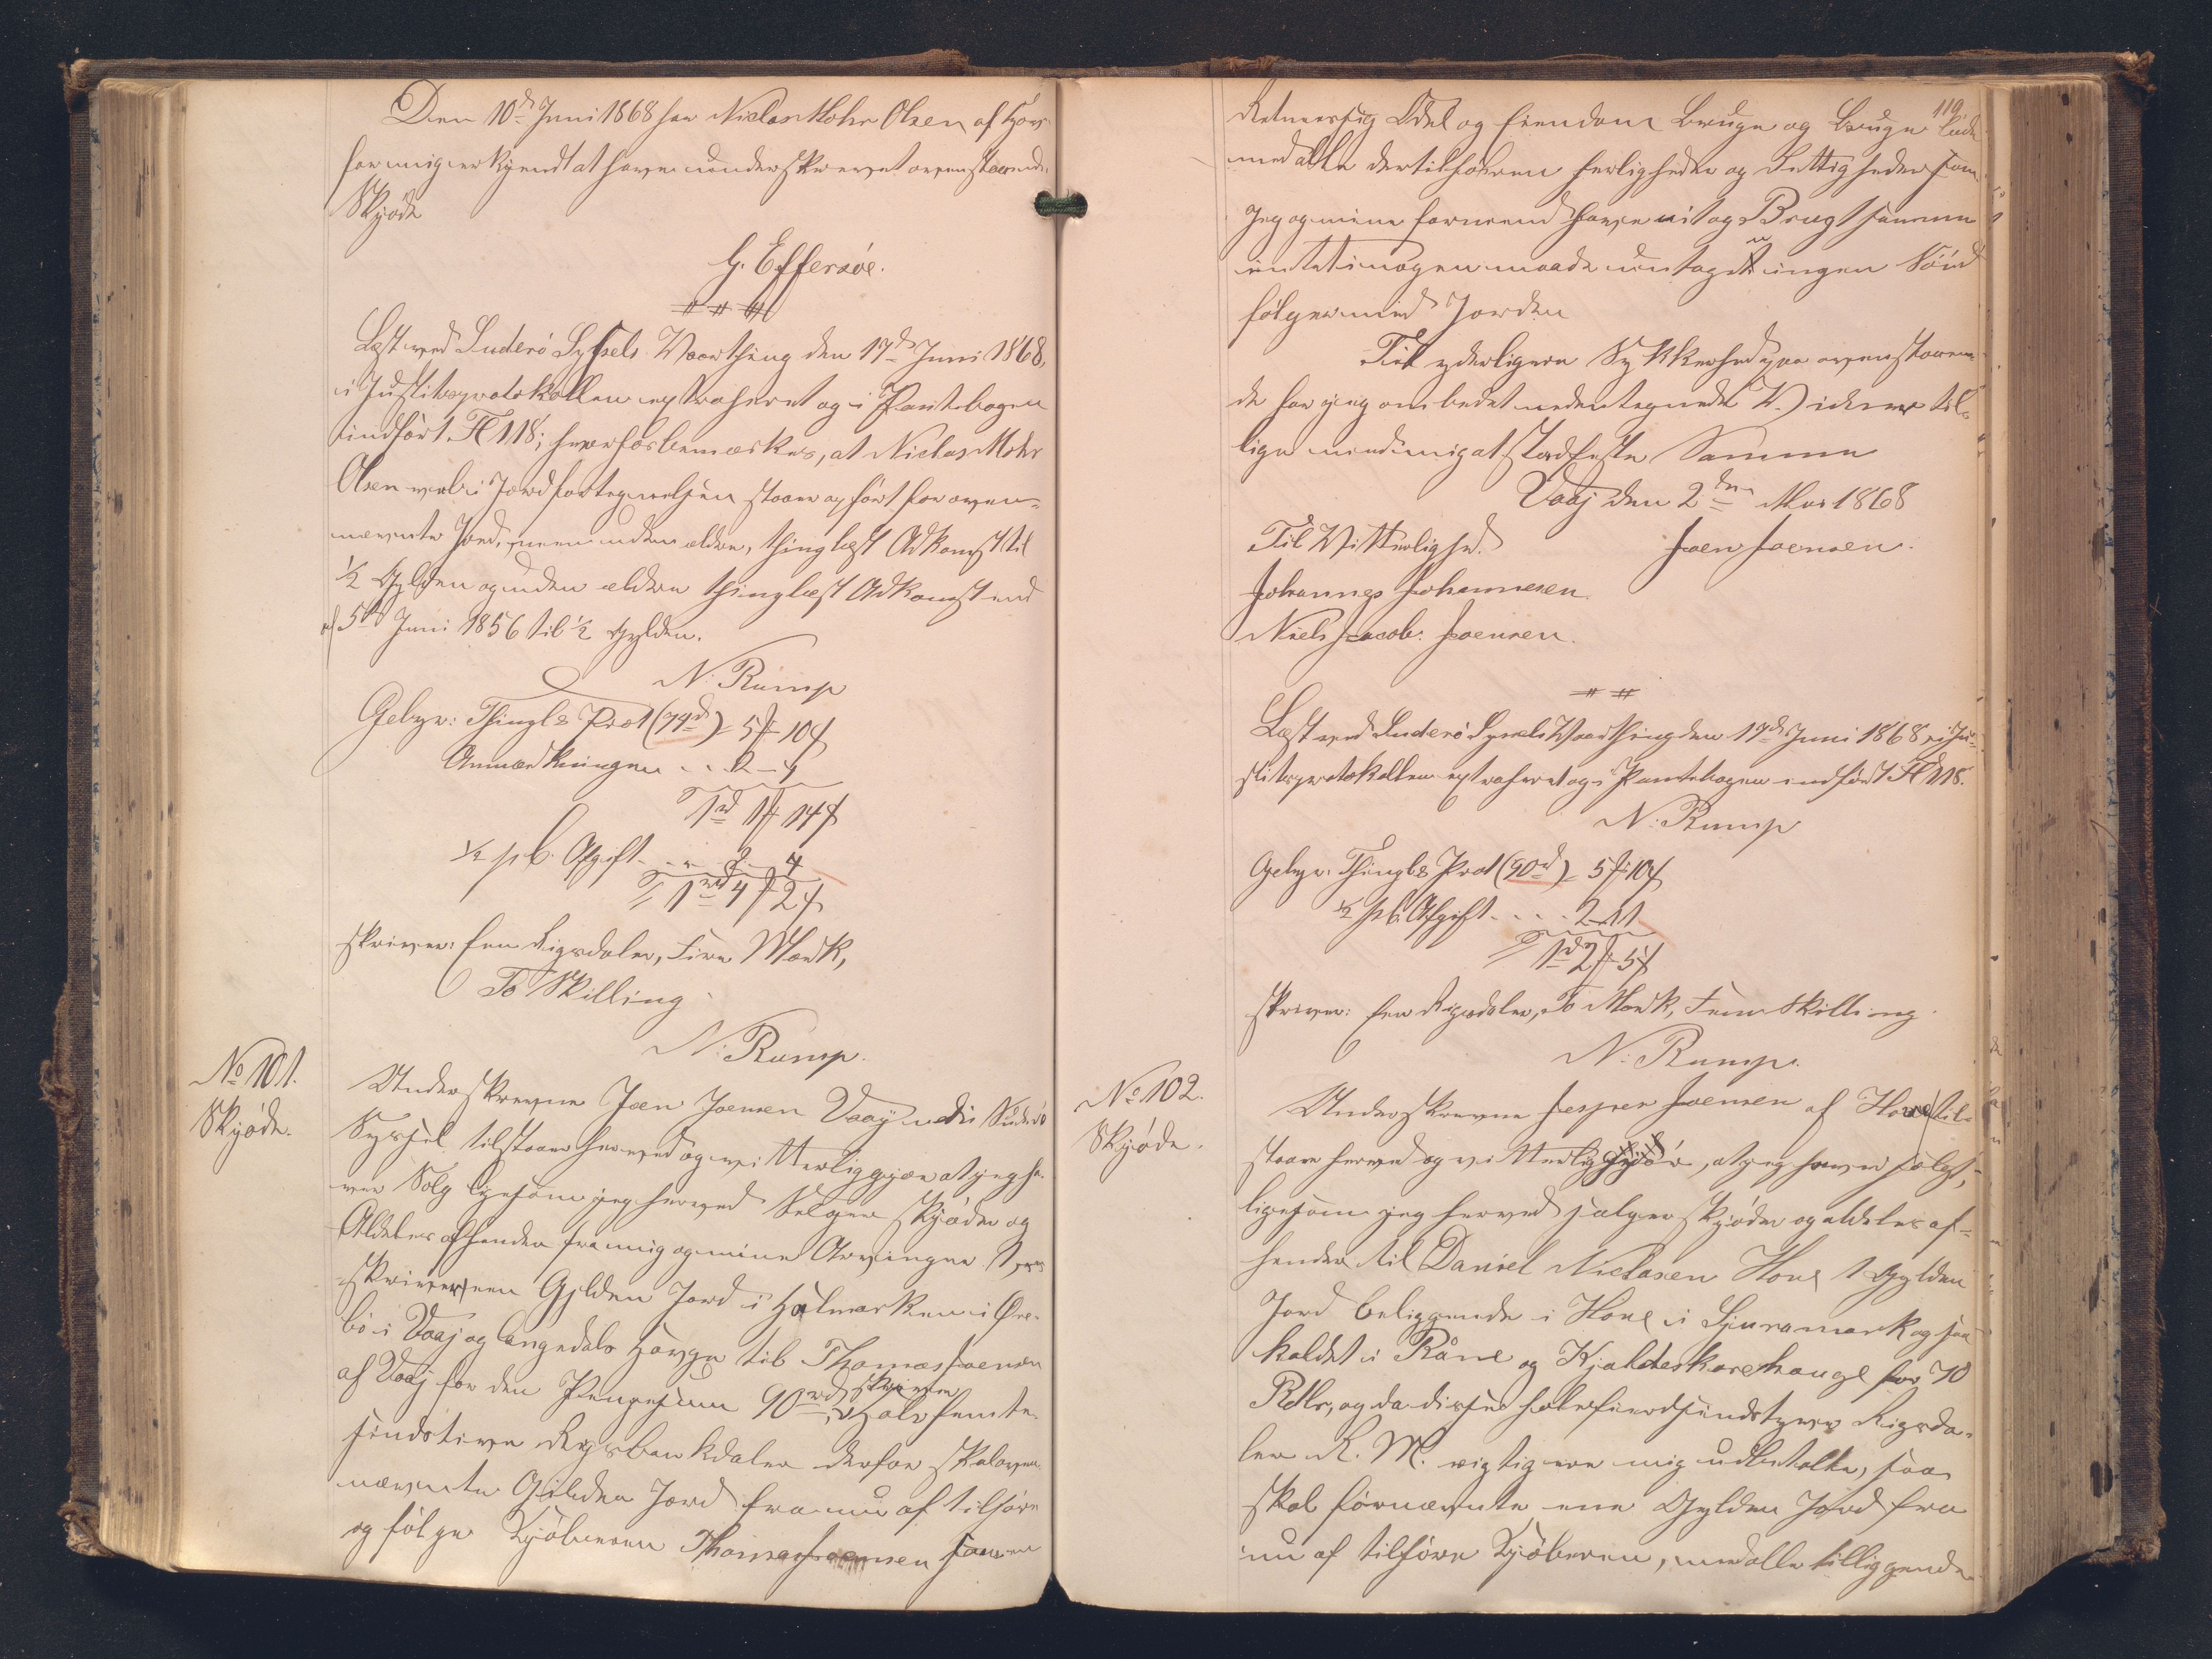 Den 10d Juni 1868 har Niclas Mohr Olsen af Hov
for mig erkjendt at have underskrevet ovenstaaende
Skjøde
G. Effersøe.
Læst ved Suderø Syssels Vaarthing den 17d Juni 1868,
i Justitsprotokollen extraheret og i Pantebogen
indført Fl 118; hvorfor bemærkes, at Niclas Mohr
Olsen vel i Jordfortegnelsen staaer opført for oven-
nævnte Jord, men uden ældre, thinglæst Adkomst til
1/2 Gylden og uden ældre thinglæst Adkomst end
af 5te Juni 1856 til 1/2 Gylden.
N. Rump
Gebyr: Thingls Prot (74d) = 5 10
Anmærkningen . . 2 - 4
1rd 1 14
1/2 pC. Afgift . . 2 4
1rd 4 2
skriver: Een Rigsdaler, Fire Mark,
To Skilling
N. Rump.
No 101.
Skjøde.
Underskrevne Joen Joensen Vaaj udi Suderø
Syssel tilstaaer herved og vitterliggjør at jeg ha-
ver Solg ligesom jeg herved Selger skjøder og
Aldeles afhender fra mig og mine Arvinger 1
skriver een Gylden Jord i Halmarken i Øre-
bø i Vaaj og langedals Hauge til Thomas Joensen
af Vaaj for den Pengesum 90rd skriver Halvfemte-
sindstive Rigsbankdaler derfor skal oven-
nævnte Gylden Jord fra nu af tilhøre
og følge Kjøberen Thomas Joensen som en
119.
Retmessig Odel og Eiendom Bruge og Bruge lade
med alle dertilhøren herligheder og Rettigheder som
Jeg og mine formend have eit og Brugt samme
intet i nogen maade untaget ingen Søúd
følger med Jorden
Til yderligere Sykkerhed paa ovenstaaen-
de har jeg ombedet nedentegnede Vidner til-
lige med mig at stadfeste Samme
Vaaj den 2den Mai 1868
Til Vitterlighed. Joen Joensen.
Johannes Johannesen.
Niels Jacob. Joensen.
Læst ved Suderø Syssels Vaarthing den 17d Juni 1868, i Ju-
stitsprotokollen extraheret og i Pantebogen indført Fl 118.
N. Rump
Gebyr: Thingls Prot (90d) = 5 10
1/2 pC. Afgift . . . . 2 11
1d 2 5
skriver: Een Rigsdaler, To Mark, Fem Skilling.
N. Rump.
No 102.
Skjøde.
Underskrevne Jesper Joensen af Hove til-
staaer herved og vitterliggjør, at jeg haver solgt,
ligesom jeg herved sælger skjøder og aldeles af-
hender til Daniel Niclasen Hove 1 Gylden
Jord beliggende i Hove i Sjuramark og saa-
kaldet i Råne og Kjaldeskarehauge for 70
Rdlr, og da disse halvfierdsindstyve Rigsda-
ler R. M. rigtig ere mig udbetalte, saa
skal førnævnte ene Gylden Jord fra
nu af tilhøre Kjøberen, med alle tilliggende